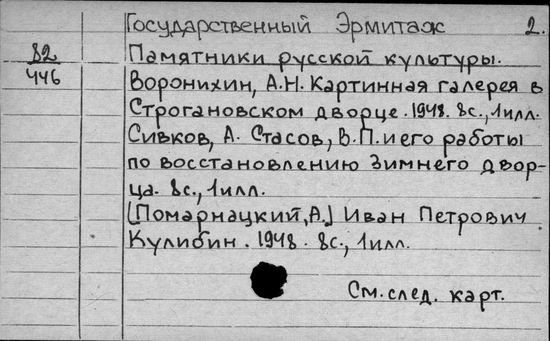 Государственный Эрмитаж 2.
82
446
Памятники русской культуры.
Воронихин, А.Н. Картинная галерея в
Строгановском дворце. 1948. 8с., 1илл.
Сивков, А. Стасов, В.П. и его работы
по восстановлению Зимнего двор-
ца. 8с., 1илл.
[Помарнацкий, А.] Иван Петрович
Кулибин. 1948. 8с., 1илл.
См. след. карт.